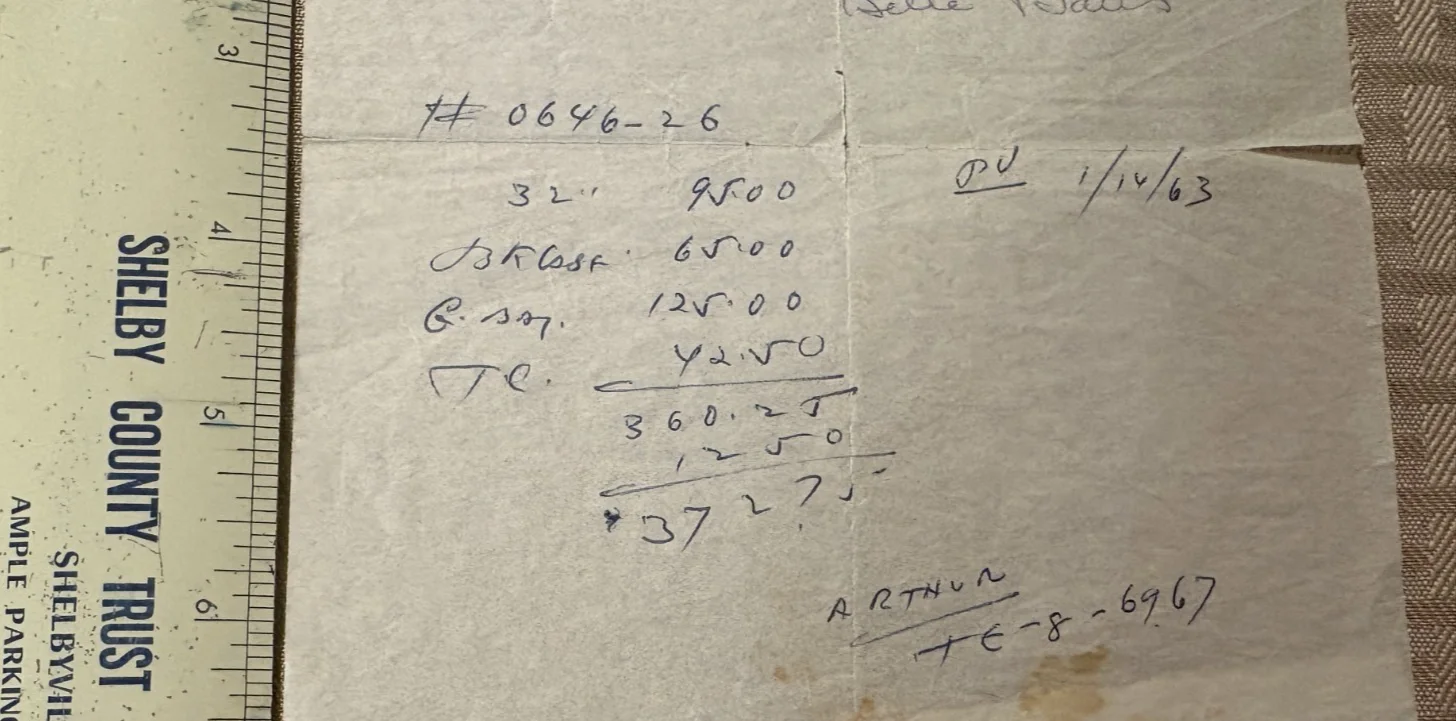 # 0646-26
32" 95.00
65.00
125.00
T C. 42.50
360.25
12 50
372 75
PU 1/14/63
ARTHUR
TE-8-6967
3
4
5
6
SHELBY COUNTY TRUST
SHELBYVIL
AMPLE PARKIN